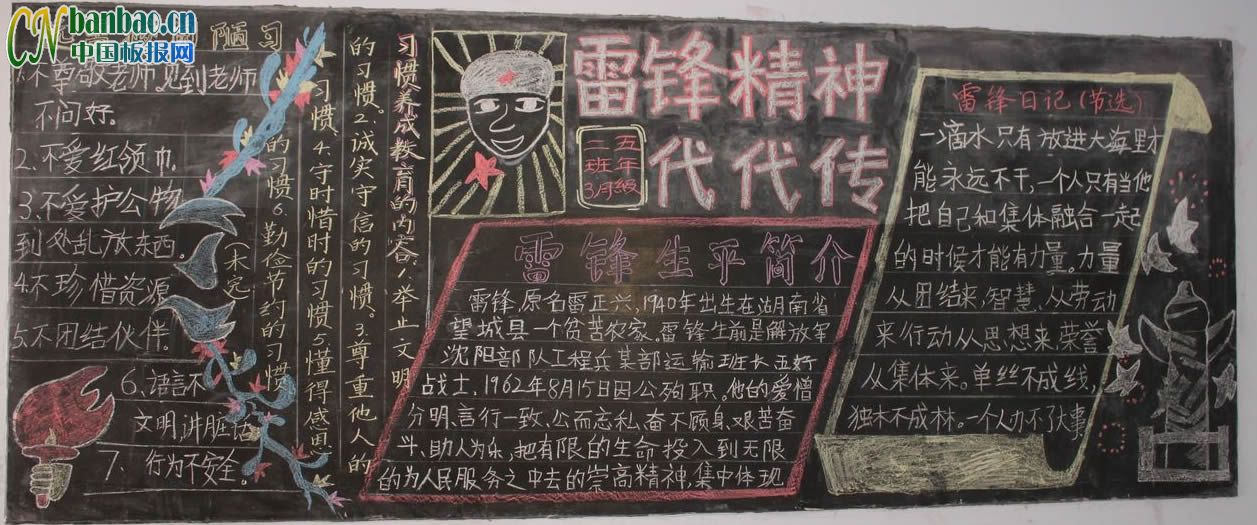 CNbanbao.cn
中国板报网
陋习
1.不尊敬老师,见到老师
不问好。
2.不爱红领巾
3.不爱护公物
到处乱放东西。
4.不珍惜资源
5.不团结伙伴。
6.语言不
文明,讲脏话
7、行为不安全。
习惯养成教育的内容:1.举止文明
的习惯。2.诚实守信的习惯。3.尊重他人的
习惯4.守时惜时的习惯5.懂得感恩
的习惯6.勤俭节约的习惯
(未完)
雷锋精神
代代传
五年级
二班
3月
雷锋生平简介
雷锋,原名雷正兴,1940年出生在湖南省
望城县一个贫苦农家。雷锋生前是解放军
沈阳部队工程兵某部运输班长五好
战士,1962年8月15日因公殉职。他的爱憎
分明、言行一致、公而忘私、奋不顾身、艰苦奋
斗、助人为乐,把有限的生命投入到无限
的为人民服务之中去的崇高精神,集中体现
雷锋日记(节选)
一滴水只有放进大海里才
能永远不干,一个人只有当他
把自己和集体融合一起
的时候才能有力量。力量
从团结来,智慧从劳动
来行动从思想来,荣誉
从集体来。单丝不成线,
独木不成林。一个人办不了大事